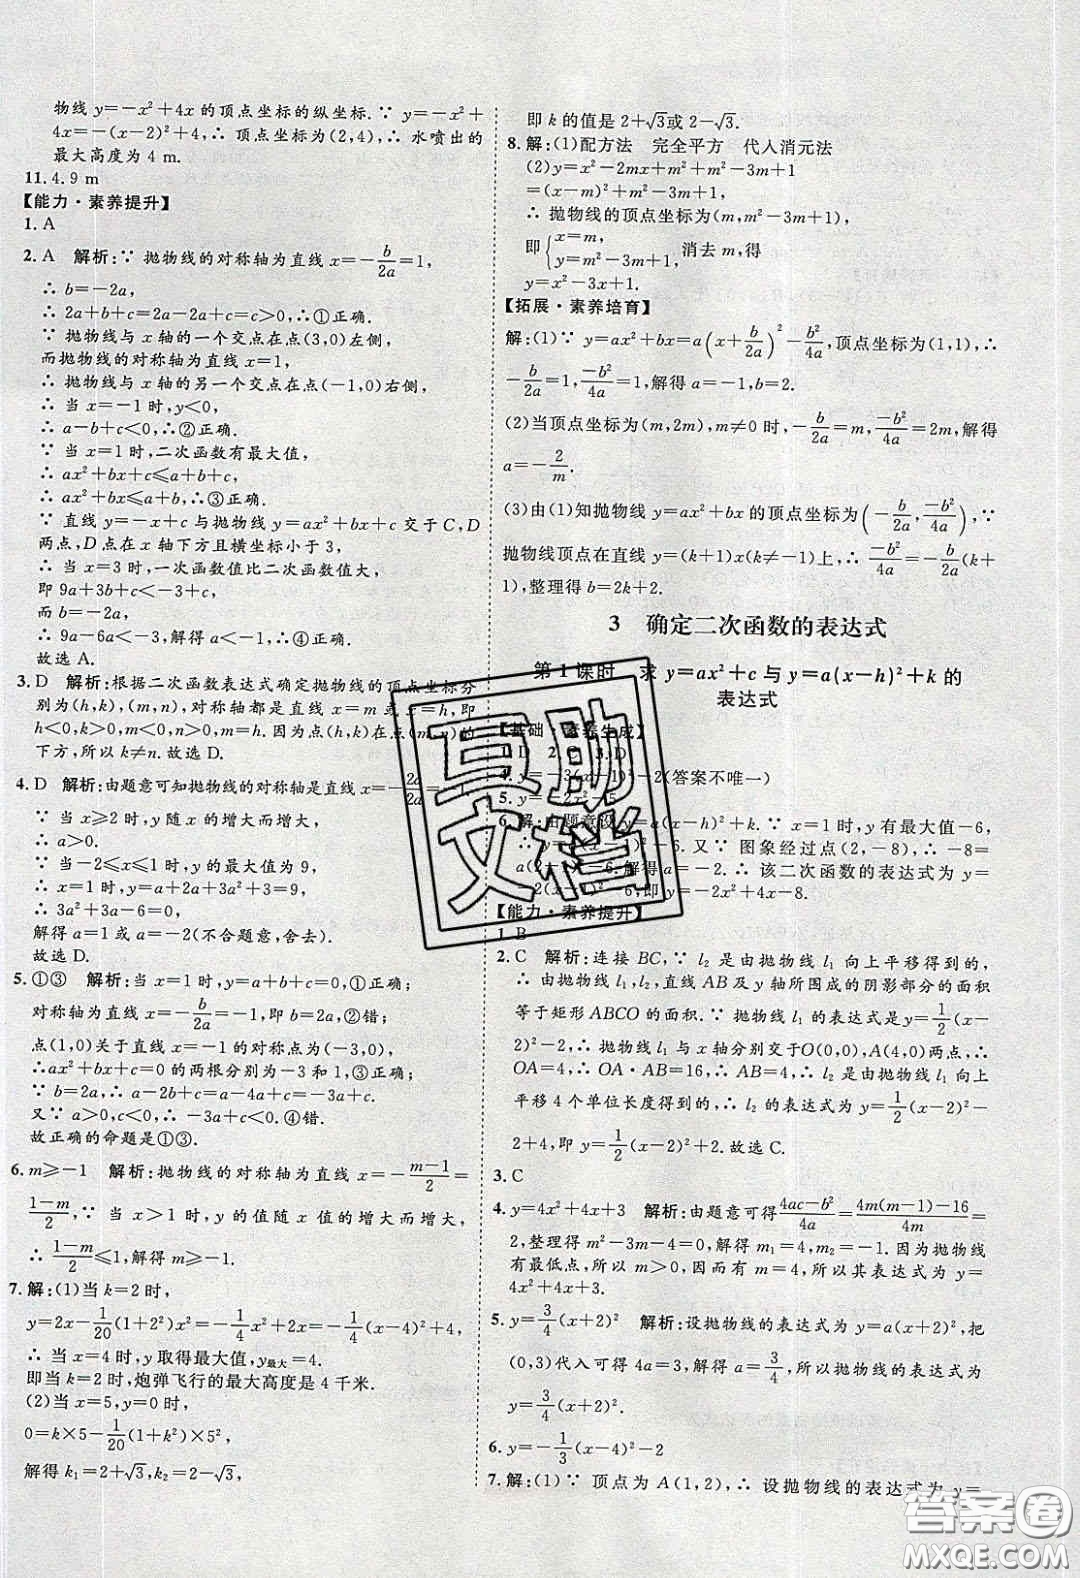 物线 y=-x²+4x 的顶点坐标的纵坐标.∵ y=-x²+
4x=-(x-2)²+4,∴ 顶点坐标为(2,4),∴ 水喷出的
最大高度为 4 m.
11. 4.9 m
【能力·素养提升】
1. A
2. A 解析:∵ 抛物线的对称轴为直线 x=-b/2a=1,
∴ b=-2a,
∴ 2a+b+c=2a-2a+c=c>0,∴①正确.
∵ 抛物线与 x 轴的一个交点在点(3,0)左侧,
而抛物线的对称轴为直线 x=1,
∴ 抛物线与 x 轴的另一个交点在点(-1,0)右侧,
∴ 当 x=-1 时,y<0,
∴ a-b+c<0,∴②正确.
∵ 当 x=1 时,二次函数有最大值,
∴ ax²+bx+c≤a+b+c,
∴ ax²+bx≤a+b,∴③正确.
∵ 直线 y=-x+c 与抛物线 y=ax²+bx+c 交于 C,D
两点,D 点在 x 轴下方且横坐标小于 3,
∴ 当 x=3 时,一次函数值比二次函数值大,
即 9a+3b+c<-3+c,
而 b=-2a,
∴ 9a-6a<-3,解得 a<-1,∴④正确.
故选 A.
3. D 解析:根据二次函数表达式确定抛物线的顶点坐标分
别为(h,k),(m,n),对称轴都是直线 x=m 或 x=h,即
h<0,k>0,m<0,n>0,m=h.因为点(h,k)在点(m,n)的
下方,所以 k≠n.故选 D.
4. D 解析:由题意可知抛物线的对称轴是直线 x=-2a/2a=
∵ 当 x≥2 时,y 随 x 的增大而增大,
∴ a>0.
∵ 当 -2≤x≤1 时,y 的最大值为 9,
∴ x=1 时,y=a+2a+3a²+3=9,
∴ 3a²+3a-6=0,
解得 a=1 或 a=-2(不合题意,舍去).
故选 D.
5. ①③ 解析:当 x=1 时,y=a+b+c=0,①对;
对称轴为直线 x=-b/2a=-1,即 b=2a,②错;
点(1,0)关于直线 x=-1 的对称点为(-3,0),
∴ax²+bx+c=0 的两根分别为-3 和 1,③对;
∵ b=2a,∴ a-2b+c=a-4a+c=-3a+c.
又∵ a>0,c<0,∴ -3a+c<0,④错.
故正确的命题是①③.
6. m≥-1 解析:抛物线的对称轴为直线 x=-(m-1)/2=
(1-m)/2,∵ 当 x>1 时,y 的值随 x 值的增大而增大,
∴ (1-m)/2≤1,解得 m≥-1.
7. 解:(1)当 k=2 时,
y=2x-1/20(1+2²)x²=-1/4x²+2x=-1/4(x-4)²+4,
∴ 当 x=4 时,y 取得最大值,y最大=4.
即当 k=2 时,炮弹飞行的最大高度是 4 千米.
(2)当 x=5,y=0 时,
0=k×5-1/20(1+k²)×5²,
解得 k₁=2+√3,k₂=2-√3,
即 k 的值是 2+√3或 2-√3.
8. 解:(1)配方法 完全平方 代人消元法
(2)y=x²-2mx+m²+m²-3m+1
=(x-m)²+m²-3m+1,
∴ 抛物线的顶点坐标为(m,m²-3m+1),
即{x=m, y=m²-3m+1, 消去 m,得
y=x²-3x+1.
【拓展·素养培育】
解:(1)∵ y=ax²+bx=a(x+b/2a)²-b²/4a,顶点坐标为(1,1),∴
-b/2a=1,-b²/4a=1,解得 a=-1,b=2.
(2)当顶点坐标为(m,2m),m≠0 时,-b/2a=m,-b²/4a=2m,解得
a=-2/m.
(3)由(1)知抛物线 y=ax²+bx 的顶点坐标为(-b/2a,-b²/4a),∵
抛物线顶点在直线 y=(k+1)x(k≠-1)上,∴ -b²/4a=-b/2a(k+
1),整理得 b=2k+2.
3 确定二次函数的表达式
第 1 课时 求 y=ax²+c 与 y=a(x-h)²+k 的
表达式
【基础·素养生成】
1. D 2. C 3. D
4. y=-3(x-1)²-2(答案不唯一)
5. y=-2x²-5
6. 解:由题意设 y=a(x-h)²+k.∵ x=1 时,y 有最大值-6,
(x-1)²-6.又∵ 图象经过点(2,-8),∴ -8=
a(2-1)²-6.解得 a=-2.∴ 该二次函数的表达式为 y=
2(x-1)²-6,即 y=-2x²+4x-8.
【能力·素养提升】
1. B
2. C 解析:连接 BC,∵ l₂ 是由抛物线 l₁ 向上平移得到的,
∴ 由抛物线 l₁,l₂,直线 AB 及 y 轴所围成的阴影部分的面积
等于矩形 ABCO 的面积.∵ 抛物线 l₁ 的表达式是 y=1/2(x-
2)²-2,∴ 抛物线 l₁ 与 x 轴分别交于O(0,0),A(4,0)两点,∴
OA=4,∴ OA·AB=16,∴ AB=4,∴ l₂ 是由抛物线 l₁ 向上
平移 4 个单位长度得到的,∴ l₂ 的表达式为 y=1/2(x-2)²-
2+4,即 y=1/2(x-2)²+2.故选 C.
3. C
4. y=4x²+4x+3 解析:由题意可得(4ac-b²)/4a=(4m(m-1)-16)/4m=
2,整理得 m²-3m-4=0,解得 m₁=4,m₂=-1.因为抛物线
有最低点,所以 m>0.因而有 m=4,所以其表达式为 y=
4x²+4x+3.
5. y=3/4(x+2)² 解析:设抛物线的表达式为 y=a(x+2)²,把
(0,3)代入可得 4a=3,解得 a=3/4,所以抛物线的表达式为 y=
3/4(x+2)².
6. y=-1/3(x-4)²-2
7. 解:(1)∵ 顶点为 A(1,2),∴ 设抛物线的表达式为 y=
互助
文档
答案圈
MXQE.COM